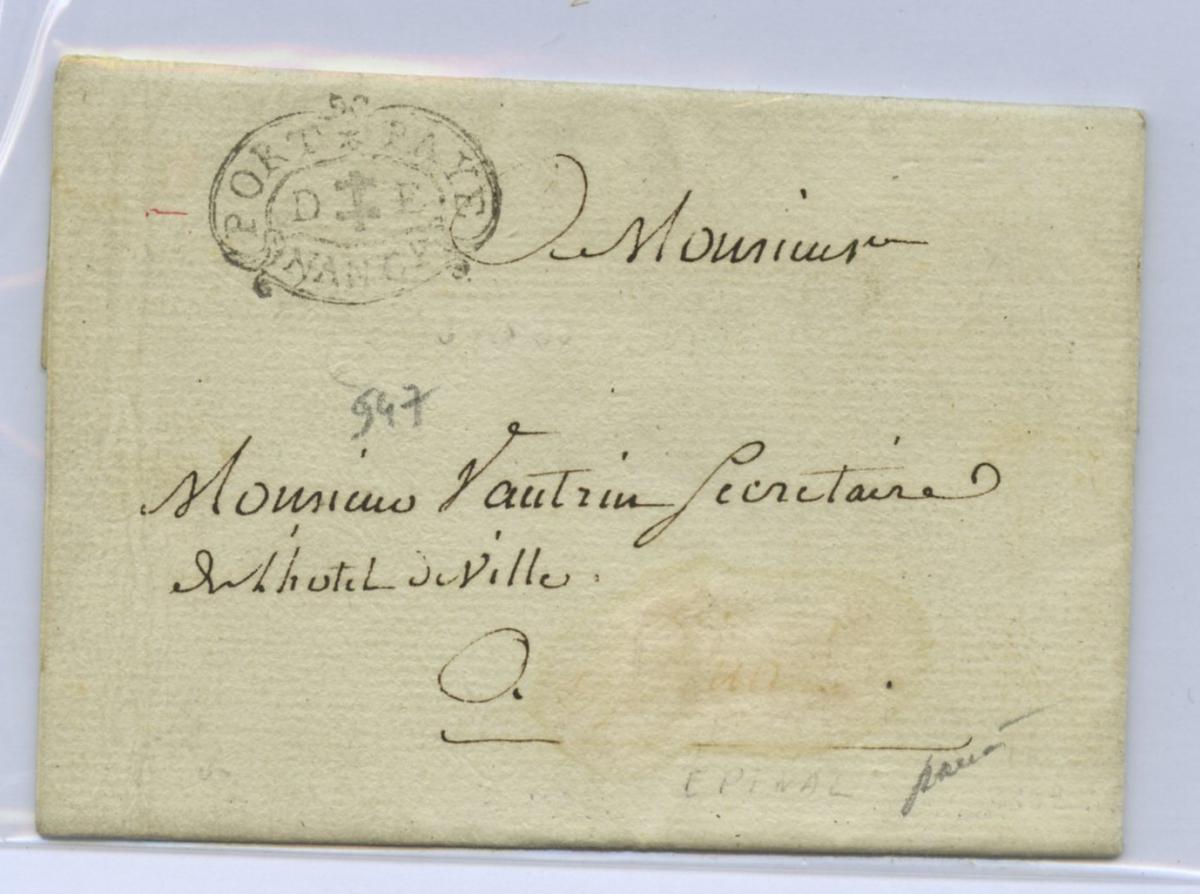 PORT * PAYE
D E
NANCY
Monsieur
547
Monsieur Vautrin Secretaire
de L'hotel de Ville .
A
EPINAL